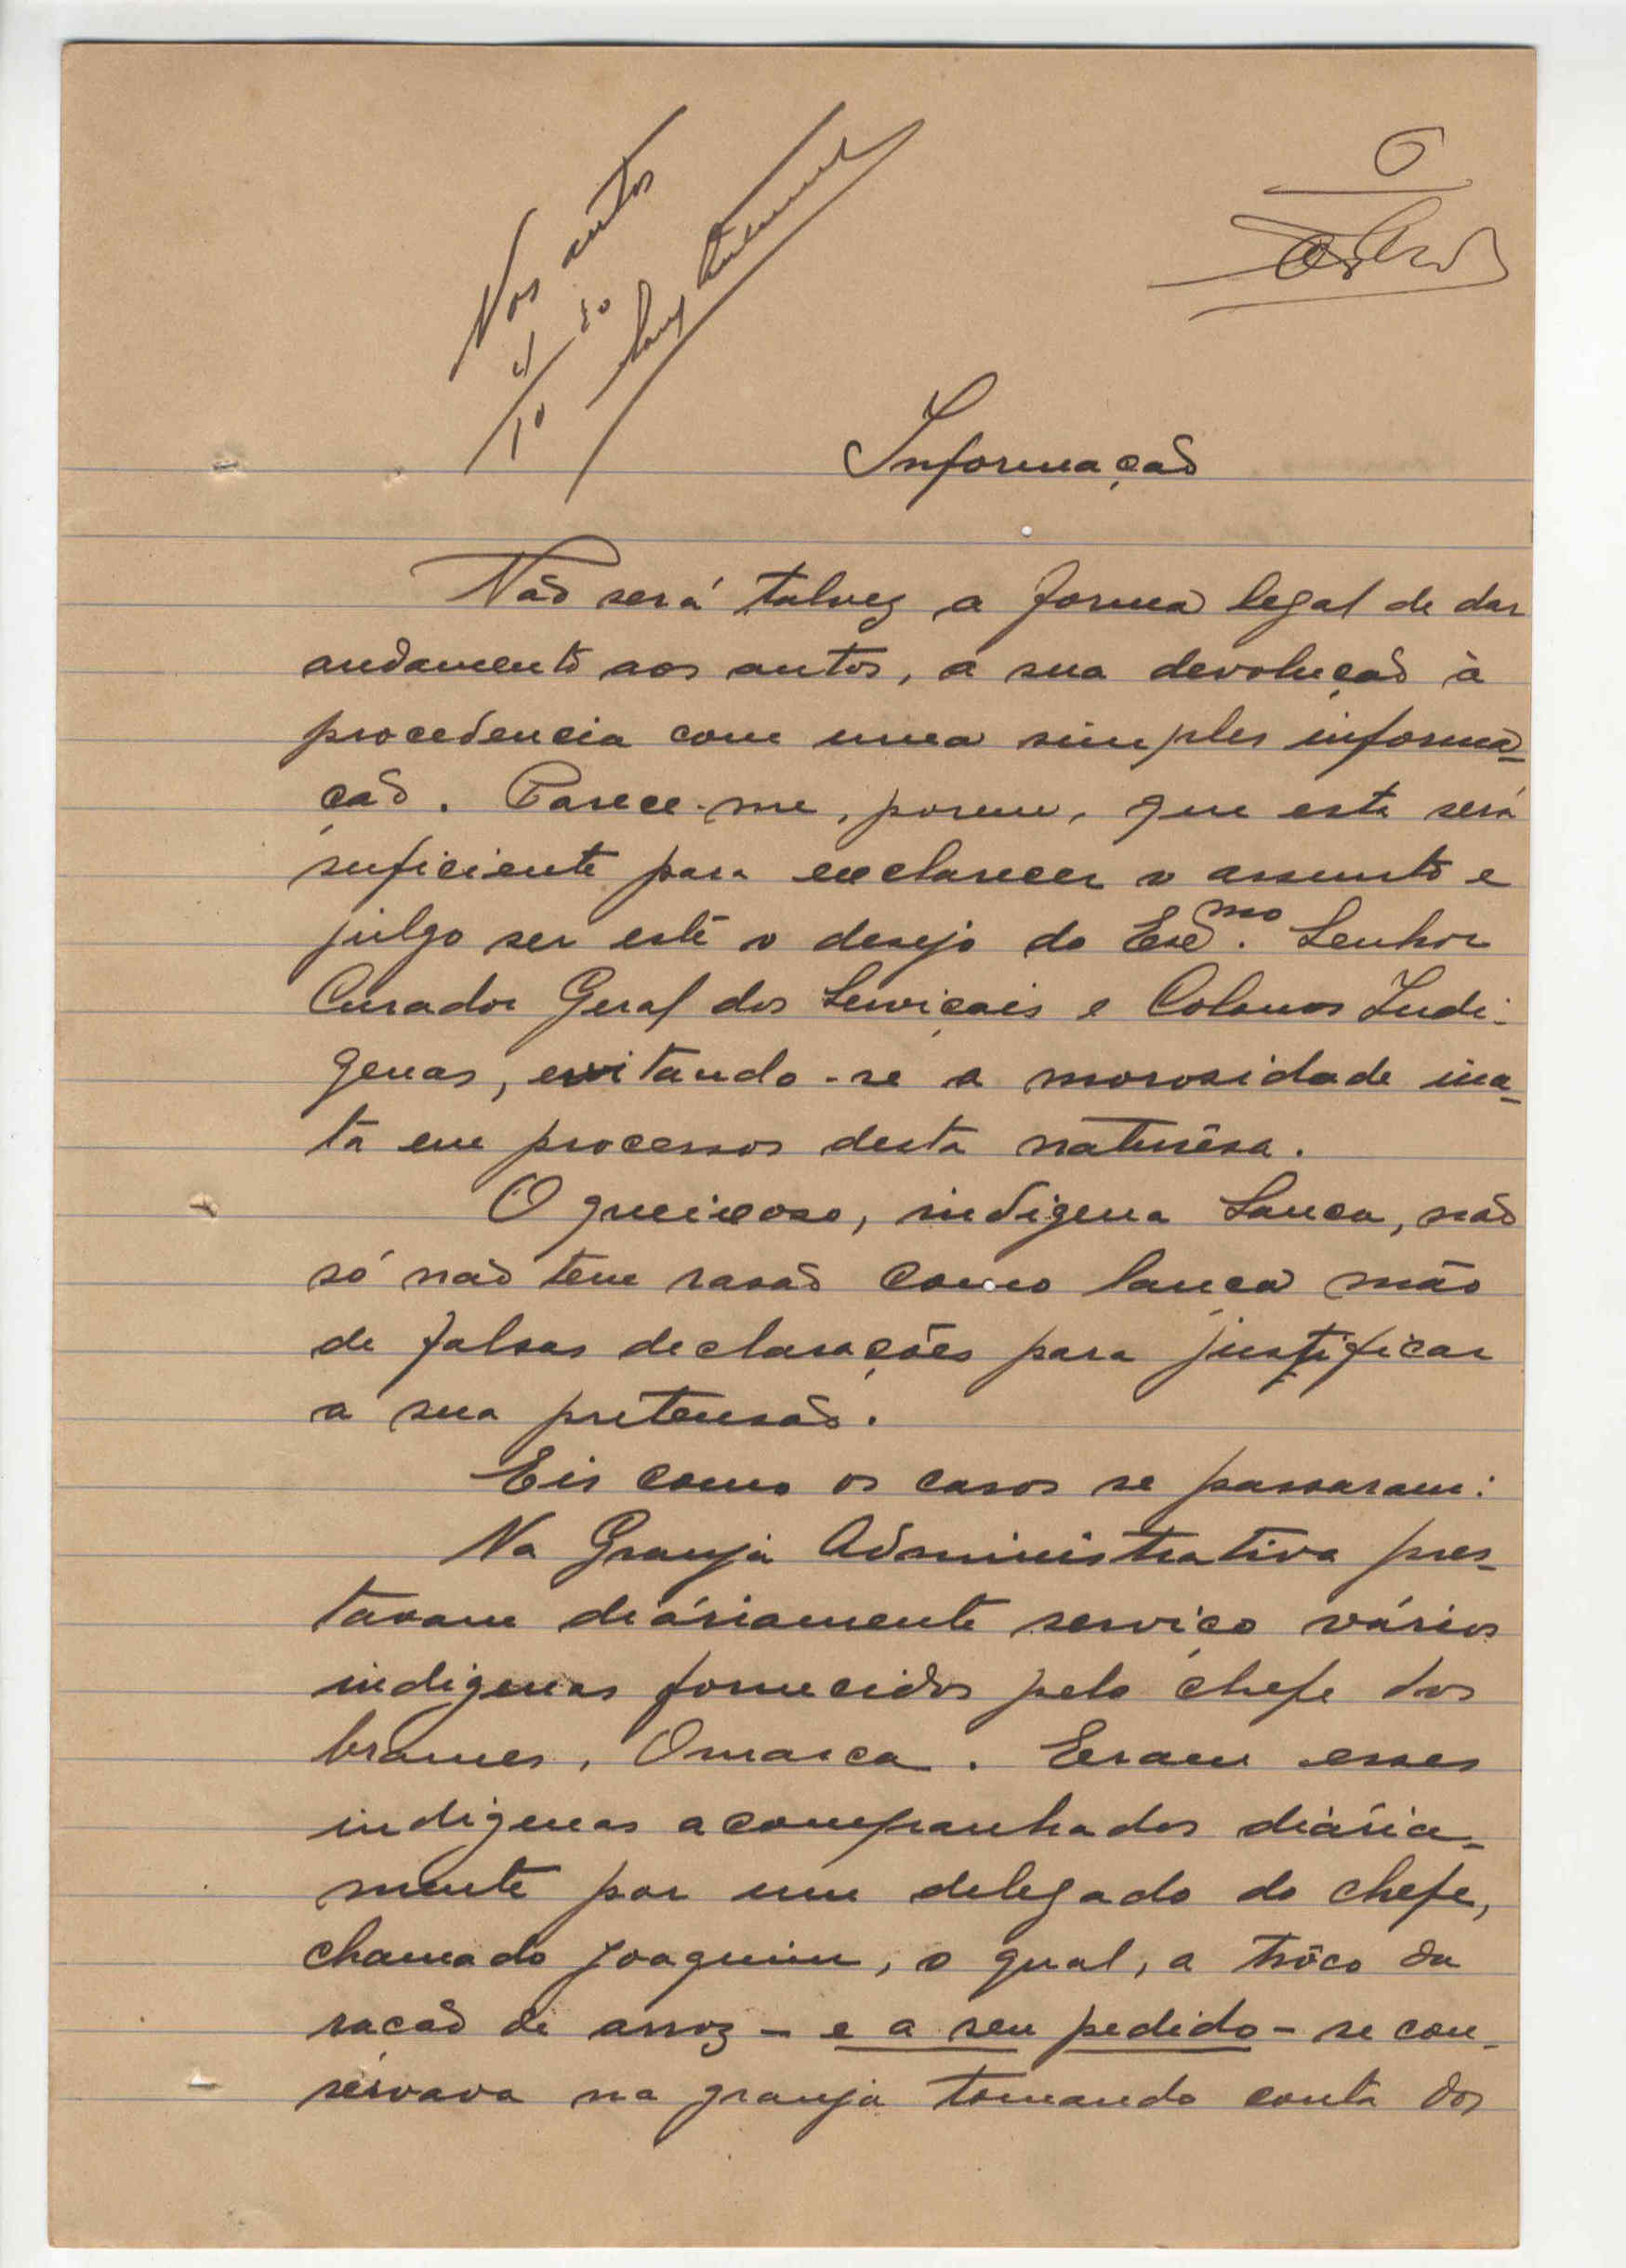 Nos autos
6
Informação
Não será talvez a forma legal de dar
andamento aos autos, a sua devolução à
procedencia com uma simples informa-
ção. Parece-me, porem, que esta será
suficiente para exclarecer o assunto e
julgo ser este o desejo do Exmo. Senhor
Curador Geral dos Serviçais e Colonos Indi-
genas, evitando-se a morosidade ina-
ta em processos desta naturêsa.
O queixoso, indigena Sanca, não
só não tem rasão como lança mão
de falsas declarações para justificar
a sua pretensão.
Eis como os casos se passaram:
Na Granja Administrativa pres-
tavam diáriamente serviço vários
indigenas fornecidos pelo chefe dos
brames, Omarca. Eram esses
indigenas acompanhados diária-
mente por um delegado do chefe,
chamado Joaquim, o qual, a trôco da
ração de arroz - e a seu pedido - se con-
servava na granja tomando conta dos